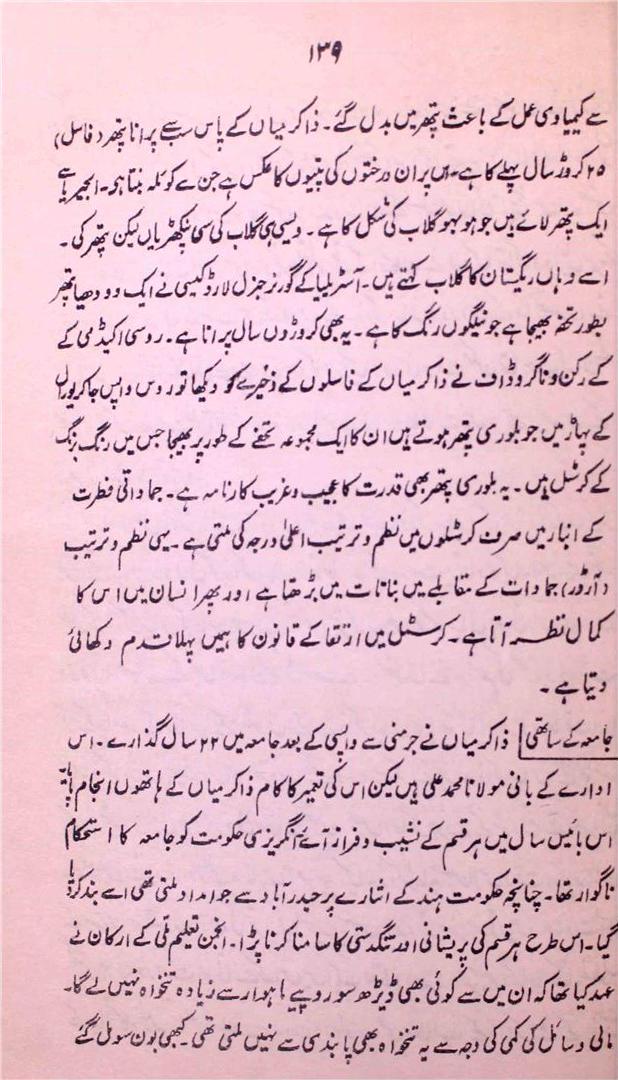 ۱۳۹
سے کیمیاوی عمل کے باعث پتھر میں بدل گئے۔ ذاکر میاں کے پاس سب سے پرانا پتھر (فاسل)
۲۵ کروڑ سال پہلے کا ہے۔ اس پر ان درختوں کی پتیوں کا عکس ہے جن سے کوئلہ بنتا ہے۔ الجیریا سے
ایک پتھر لائے ہیں جو ہو بہو گلاب کی شکل کا ہے۔ ویسی ہی گلاب کی سی پنکھڑیاں لیکن پتھر کی۔
اسے وہاں ریگستان کا گلاب کہتے ہیں۔ آسٹریلیا کے گورنر جنرل لارڈ کیسی نے ایک دودھیا پتھر
بطور تحفہ بھیجا ہے جو نیلگوں رنگ کا ہے۔ یہ بھی کروڑوں سال پرانا ہے۔ روسی اکیڈمی کے
کے رکن وناگروڈاف نے ذاکر میاں کے فاسلوں کے ذخیرے کو دیکھا تو روس واپس جا کر یورال
کے پہاڑ میں جو بلوری پتھر ہوتے ہیں ان کا ایک مجموعہ تحفے کے طور پر بھیجا جس میں رنگ برنگ
کے کرسٹل ہیں۔ یہ بلوری پتھر بھی قدرت کا عجیب و غریب کارنامہ ہے۔ جماداتی فطرت
کے انبار میں صرف کرسٹلوں میں نظم و ترتیب اعلیٰ درجہ کی ملتی ہے۔ یہی نظم و ترتیب
(آرڈر) جمادات کے مقابلے میں نباتات میں بڑھتا ہے اور پھر انسان میں اس کا
کمال نظر آتا ہے۔ کرسٹل میں ارتقا کے قانون کا ہمیں پہلا قدم دکھائی
دیتا ہے۔
جامعہ کے ساتھی ذاکر میاں نے جرمنی سے واپسی کے بعد جامعہ میں ۲۲ سال گذارے۔ اس
ادارے کے بانی مولانا محمد علی ہیں لیکن اس کی تعمیر کا کام ذاکر میاں کے ہاتھوں انجام پایا
اس بائیس سال میں ہر قسم کے نشیب و فراز آئے۔ انگریزی حکومت کو جامعہ کا استحکام
ناگوار تھا۔ چنانچہ حکومت ہند کے اشارے پر حیدرآباد سے جو امداد ملتی تھی اسے بند کر دیا
گیا۔ اس طرح ہر قسم کی پریشانی اور تنگدستی کا سامنا کرنا پڑا۔ انجمن تعلیم ملی کے ارکان نے
عہد کیا تھا کہ ان میں سے کوئی بھی ڈیڑھ سو روپیے ماہوار سے زیادہ تنخواہ نہیں لے گا۔
مالی وسائل کی کمی کی وجہ سے یہ تنخواہ بھی پابندی سے نہیں ملتی تھی۔ کبھی پون سو مل گئے